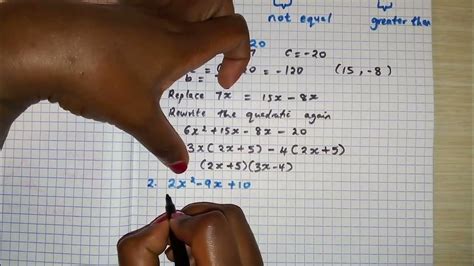 not equal greater than
20
7 c = -20
20 = -120 (15, -8)
b =
Replace 7x = 15x - 8x
Rewrite the quadratic again
6x² + 15x - 8x - 20
3x(2x+5) - 4(2x+5)
(2x+5)(3x-4)
2. 2x² - 9x + 10